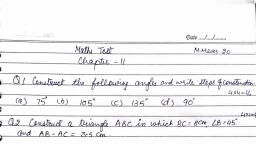 Date __/__/__
Maths Test M.Marks 20
Chapter - 11
Q1 Construct the following angles and write steps of construction.
4x4=16
(a) 75° (b) 105° (c) 135° (d) 90°
Q2 Construct a triangle ABC in which BC = 8cm, ∠B = 45°
and AB - AC = 3.5 cm